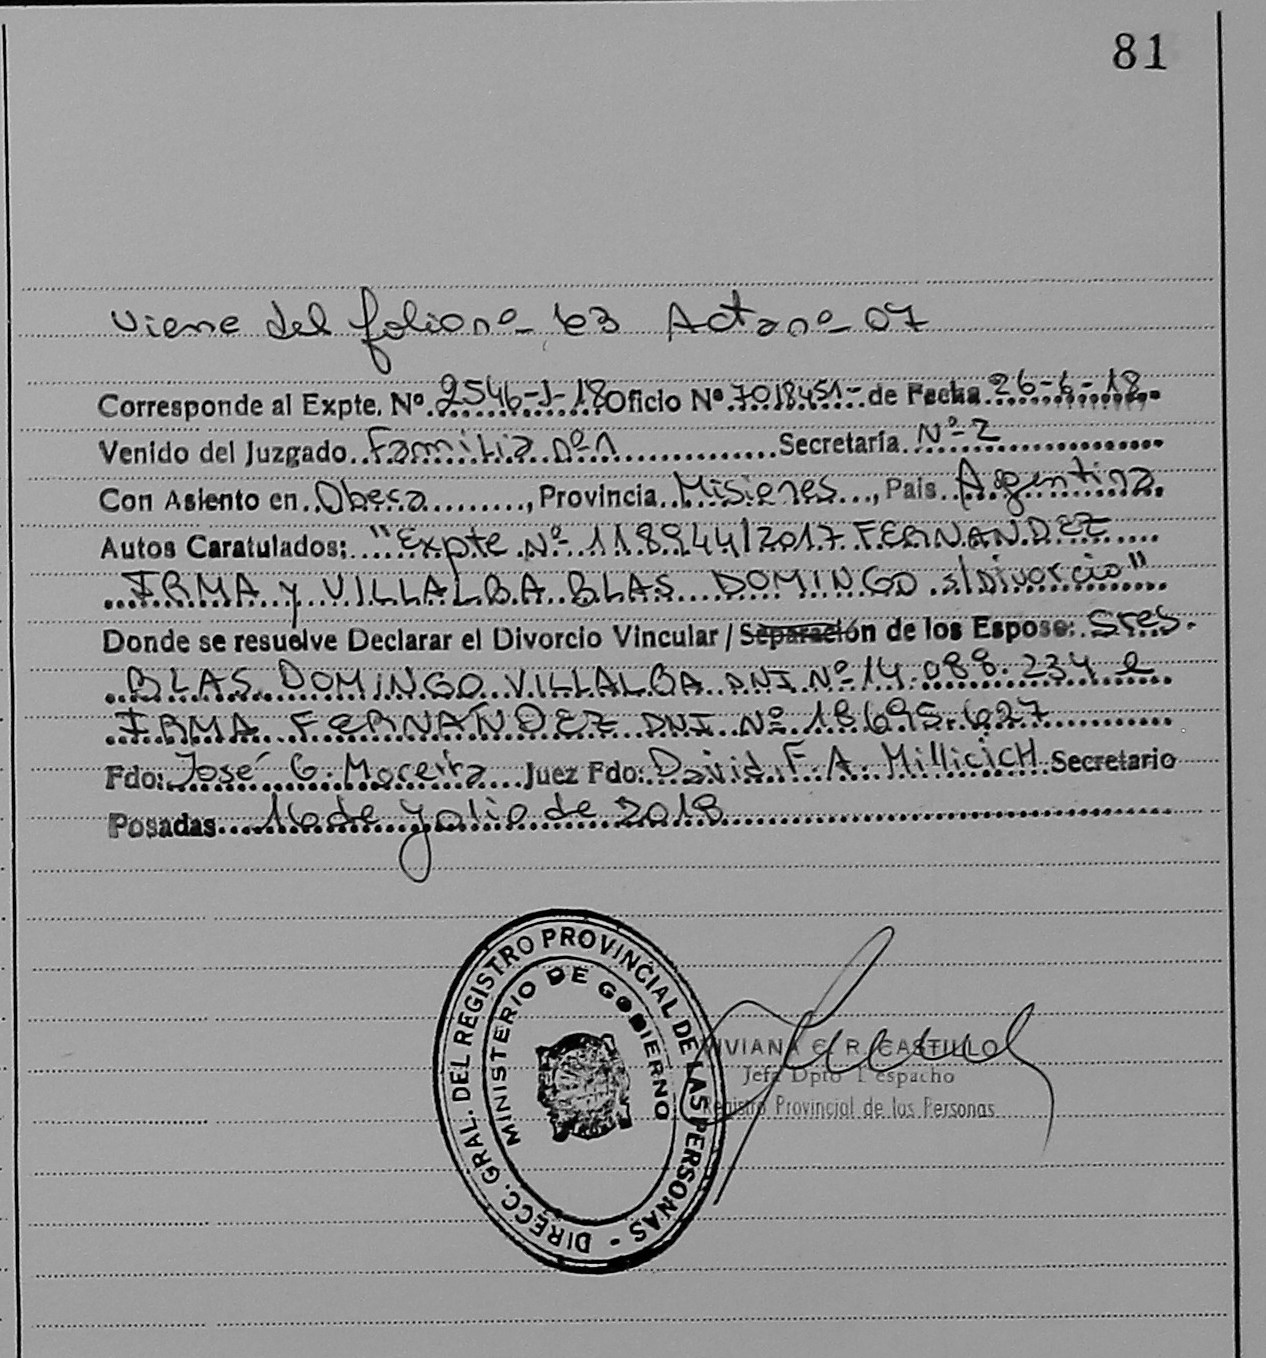 81
Viene del folio nº 63 Acta nº 07
Corresponde al Expte. Nº 2546-J-18 Oficio Nº 7018451- de Fecha 26-6-18.
Venido del Juzgado Familia nº 1 Secretaría Nº 2
Con Asiento en Obera, Provincia Misiones, Pais Argentina.
Autos Caratulados: "Expte Nº 118944/2017 FERNANDEZ
IRMA y VILLALBA BLAS DOMINGO s/Divorcio"
Donde se resuelve Declarar el Divorcio Vincular / Separación de los Esposo: Sres.
BLAS DOMINGO VILLALBA DNI Nº 14.088.234 e
IRMA FERNANDEZ DNI Nº 18.695.627
Fdo: José G. Moreira Juez Fdo: David F. A. MilliciCH Secretario
Posadas 16 de Julio de 2018
DIRECC. GRAL. DEL REGISTRO PROVINCIAL DE LAS PERSONAS -
MINISTERIO DE GOBIERNO
VIVIANA R. CASTILLO
Jefa Dpto Despacho
Registro Provincial de las Personas